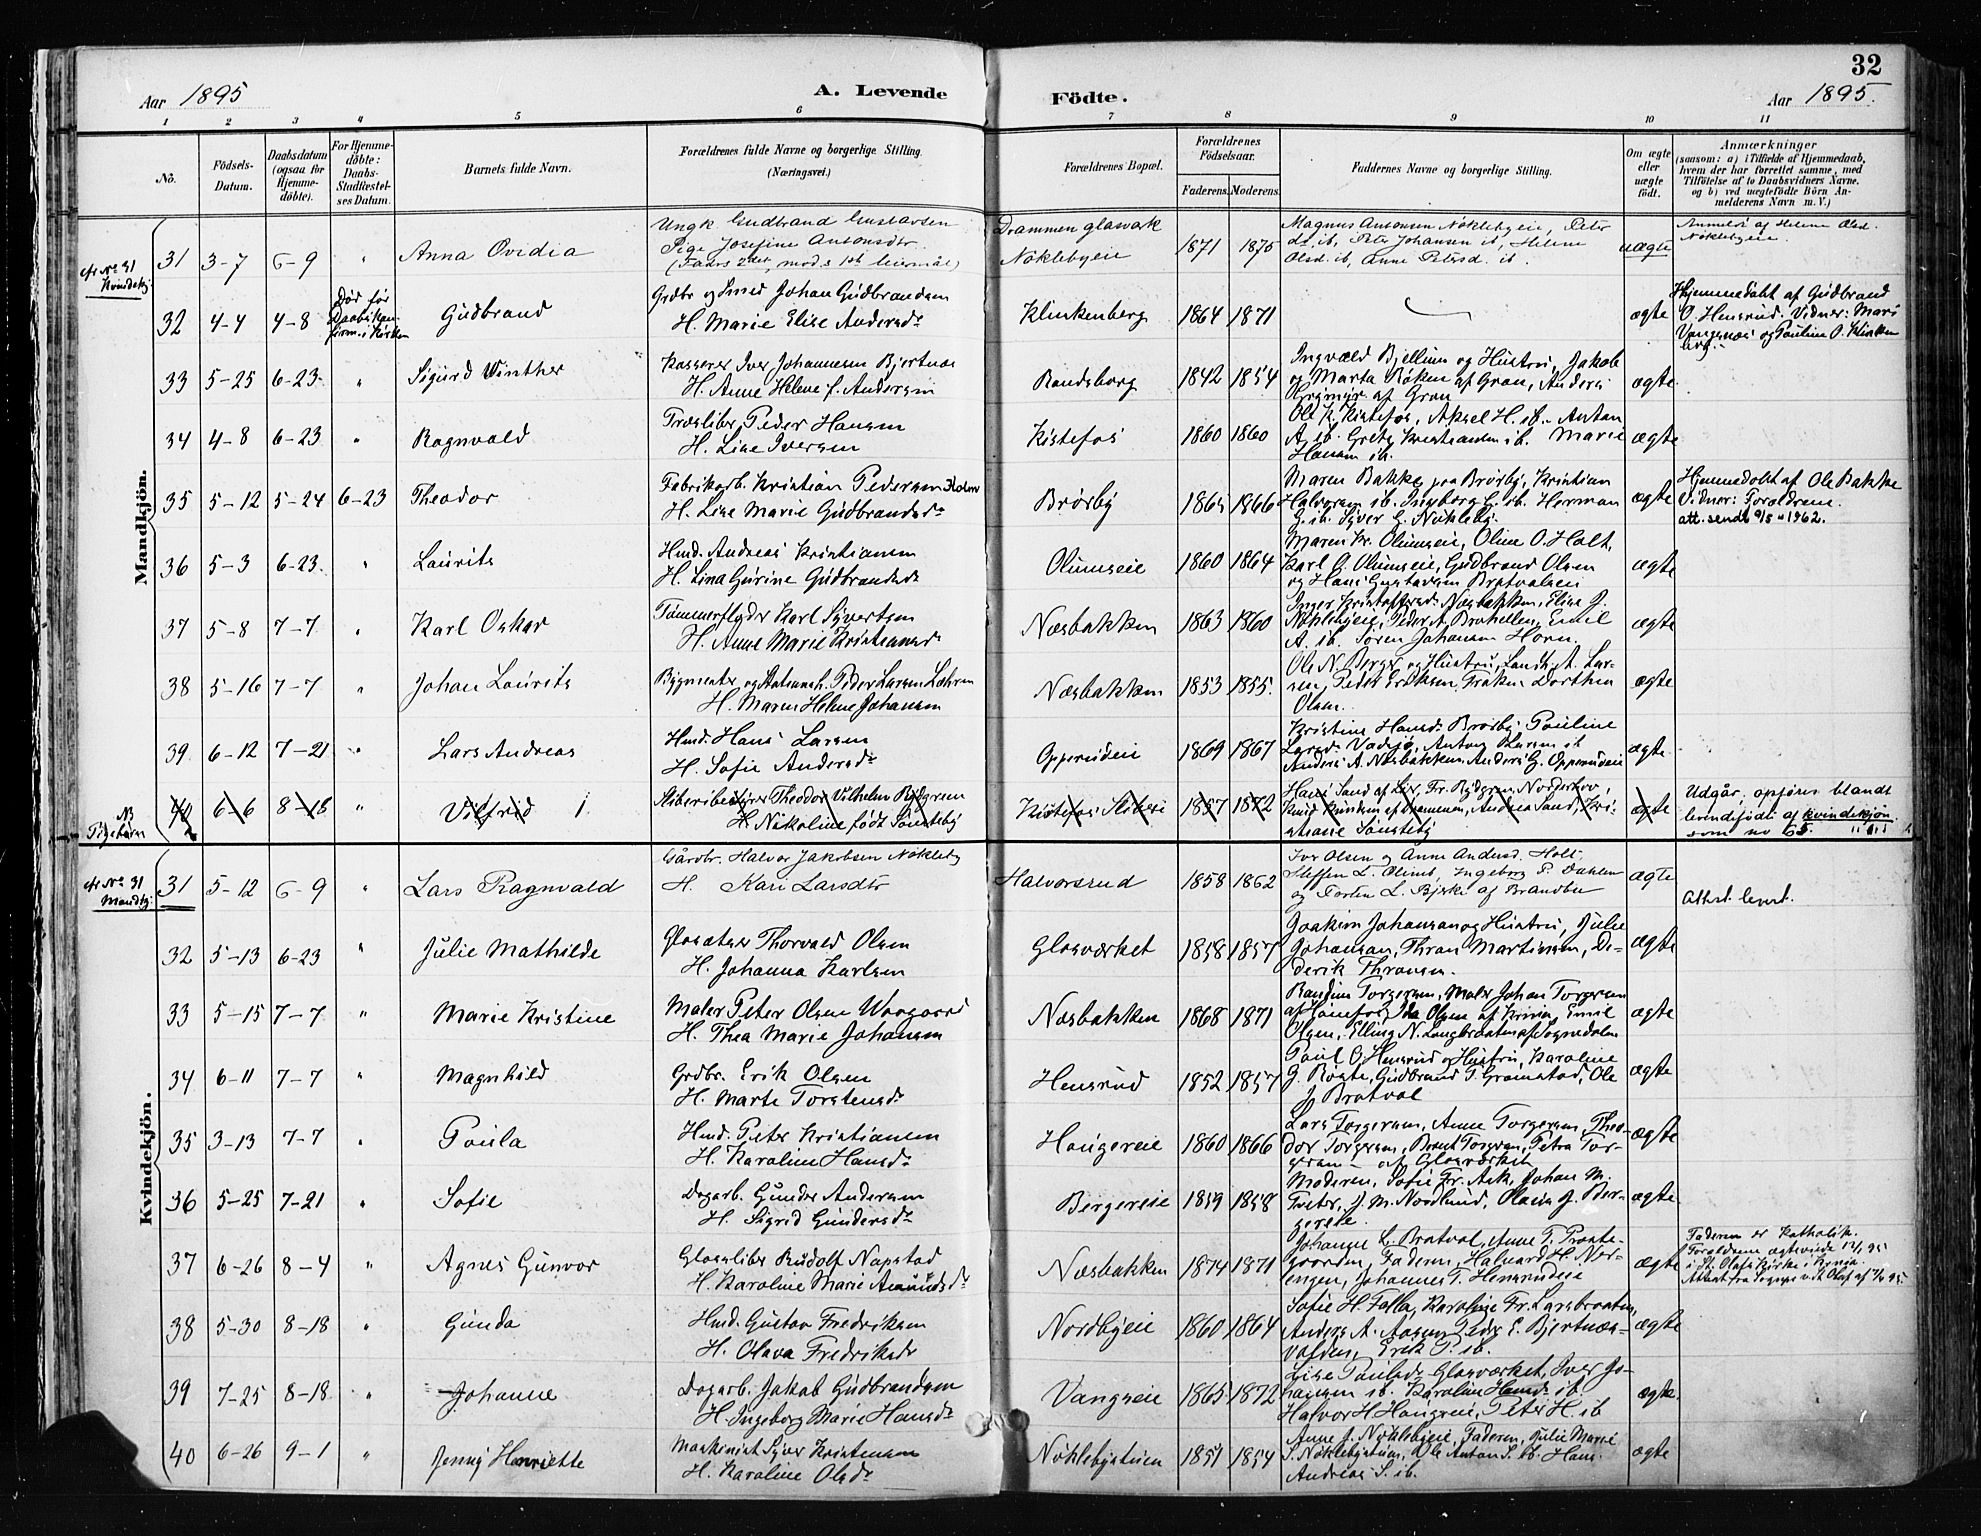 32
Aar 1895
A. Levende
Födte.
Aar 1895.
1 2 3 4 5 6 7 8 9 10 11
No.
Födsels-
Datum.
Daabsdatum
(ogsaa for
Hjemme-
döbte).
For Hjemme-
döbte:
Daabs-
Stadfæstel-
ses Datum.
Barnets fulde Navn.
Forældrenes fulde Navne og borgerlige Stilling.
(Næringsvei.)
Forældrenes Bopæl.
Forældrenes
Födselsaar.
Faderens. Moderens.
Faddernes Navne og borgerlige Stilling.
Om ægte
eller
uægte
födt.
Anmærkninger
(saasom: a) i Tilfælde af Hjemmedaab,
hvem der har forrettet samme, med
Tilföielse af to Daabsvidners Navne,
og b) ved uegtefödte Börn An-
melderens Navn m. V.)
Mandkjön.
cfr No 31
Kvindekj.
31 3-7 6-9 " Anna Ovidia
Ungk Gudbrand Gustavsen
Pige Josefine Antonsdtr.
(Faders 2det, mods 1ste leiermål)
Drammen glasværk
Nöklebyeie
1871 1875
Magnus Antonsen Nöklebyeie, Peter
L. ib, Peter Johansen ib, Helene
Olsd. ib, Anne Petersd. ib.
uægte
Anmeldt af Helene Olsd.
Nöklebyeie.
32 4-4 4-8
Död för
Daabskon-
firm. i Kirken
Gudbrand
Grdbr og Smed Johan Gudbrandsen
H. Marie Elise Andersdr
Klinkenberg 1864 1871 ægte
Hjemmedöbt af Gudbrand
O. Hensrud. Vidner: Mari
Vangsnes og Pauline O. Klinken
berg.
33 5-25 6-23 " Sigurd Vinther
Kasserer Iver Johannesen Bjertnæs
H. Anne Helene f. Andersen
Randsborg 1842 1854
Ingvald Bjellum og Hustru, Jakob
og Marta Röken af Gran, Anders
af Gran
ægte
34 4-8 6-23 " Ragnvald
Træsliber Peder Hansen
H. Lise Iversen
Kistefos 1860 1860
Ole K. Kistefos, Aksel H. ib. Anton
A. ib. Grete Kristiansen ib. Marie
Hansen ib.
ægte
35 5-12 5-24 6-23 Theodor
Fabrikarb. Kristian Pedersen Holm
H. Lise Marie Gudbrandsdr
Brörby 1865 1866
Maren Bakke paa Brörby, Kristian
Halvorsen ib. Ingeborg G. ib. Herman
G. ib. Syver G. Nökleby.
ægte
Hjemmedöbt af Ole Bakke
Vidner: Forældrene.
att. sendt 9/5 1962.
36 5-3 6-23 " Laurits
Hmd. Andreas Kristiansen
H. Lina Gurine Gudbrandsdr
Olimseie 1860 1864
Maren Kr. Olimseie, Oline O. Holt,
Karl O. Olimseie, Gudbrand Olsen
og Hans Gustavsen Bratvalseie
ægte
37 5-8 7-7 " Karl Oskar
Tömmerflyder Karl Syvertsen
H. Anne Marie Kristiansdr
Næsbakken 1863 1860
Inger Kristoffersdr Næsbakken, Elise G.
Nöklebyeie, Peder A. Brakellen, Emil
A. ib. Sören Johansen Horn.
ægte
38 5-16 7-7 " Johan Laurits
Bygmester og Stationsh. Peder Larsen Lehren
H. Maren Helene Johansen
Næsbakken 1853 1855.
Ole N. Berger og Hustru, Landh. A. Lar-
sen, Peder Eriksen, Fröken Dorthea
Olsen.
ægte
39 6-12 7-21 " Lars Andreas
Hmd. Hans Larsen
H. Sofie Andersdr
Opperudeie 1869 1867
Kristine Hansdr Brörby Pauline
Larsdr Vadsjö, Anton Larsen ib
Anders A. Næsbakken, Anders G. Opperudeie
ægte
NB
Pigebarn
40 6-6 8-18 " Vilfrid
Sliberibestyrer Theodor Vilhelm Rydgren
H. Nikoline född Sönsteby
Kistefos Sliberi 1857 1872
Hans Sand af Lier, Fr. Rydgren Nodserhov,
Knud Knudsen af Drammen, Andrea Sand, Kri-
stiane Sönsteby
ægte
Udgår, opföres blandt
levendefödte af kvindekjön
som no 65.
Kvindekjön.
cfr No 31
Mandkj.
31 5-12 6-9 " Lars Ragnvald
Gårdbr. Halvor Jakobsen Nökleby
H. Kari Larsdtr
Halvorsrud 1858 1862
Iver Olsen og Anne Andersd. Holt.
Steffen L. Olimb, Ingeborg P. Dahlen
og Torsten L. Bjerke af Brandbu
ægte
Attest levert.
32 5-13 6-23 " Julie Mathilde
Glasætser Thorvald Olsen
H. Johanna Karlsen
Glasværket 1858 1857
Joakim Johansen og Hustru, Julie
Johansen, Thran Martinsen, De-
derik Thransen.
ægte
33 5-15 7-7 " Marie Kristine
Maler Peter Olsen Waagaard
H. Thea Marie Johansen
Næsbakken 1868 1871
Randine Torgersen, Maler Johan Torgersen
af Hönefos, Ida Olsen af Kr.via, Emil
Olsen, Elling N. Langbraaten af Sognedalen
ægte
34 6-11 7-7 " Magnhild
Grdbr. Erik Olsen
H. Marte Torstensdr
Hensrud 1852 1857
Paul O. Hensrud og Hustru, Karoline
G. Rögte, Gudbrand T. Grönstad, Ole
J. Bratval
ægte
35 3-13 7-7 " Paula
Hmd. Peter Kristiansen
H. Karoline Hansdr
Haugereie 1860 1866
Lars Torgersen, Anne Torgersen, Theo-
dor Torgersen, Brent Torgersen, Petra Tor-
gersen af Glasværket
ægte
36 5-25 7-21 " Sofie
Dagarb. Gunder Andersen
H. Sigrid Gundersdr
Bergereie 1859 1858
Moderen, Sofie Fr. Ask, Johan M.
Tveter, J. M. Nordlund, Olaus J. Ber-
gereie.
ægte
37 6-26 8-4 " Agnes Gunvor
Glassliber Rudolf Napstad
H. Karoline Marie Amundsdr
Næsbakken 1874 1871
Johanne L. Bratval, Anne T. Præste-
gaarden, Faderen, Halvard H. Nor-
engen, Johannes T. Hensrudeie
ægte
Faderen er Katholik.
Forældrene ægteviede 12/1 95
i St. Olafs Kirke i Kr.nia.
Attest fra Sognepr. v. St. Olaf af 7/6 95.
38 5-30 8-18 " Gunda
Hmd. Gustav Fredriksen
H. Olava Fredriksdr
Nordbyeie 1860 1864
Sofie H. Falla, Karoline Fr. Larsbraaten,
Anders A. Aasen, Peder E. Bjertnæs-
valden, Erik P. ib.
ægte
39 7-25 8-18 " Johanne
Dagarb. Jakob Gudbrandsen
H. Ingeborg Marie Hansdr
Vangseie 1865 1872
Lise Paulsdr Glasværket, Iver Jo-
hansen ib. Karoline Hansdr ib.
Halvor H. Haugseie, Peter H. ib
ægte
40 6-26 9-1 " Jenny Henriette
Maskinist Syver Kristensen
H. Karoline Olsdr
Nöklebystuen 1851 1854
Anne J. Nöklebyeie, Faderen, Julie Marie
S. Nöklebystuen, Ole Anton S. ib. Hans
Andreas S. ib.
ægte